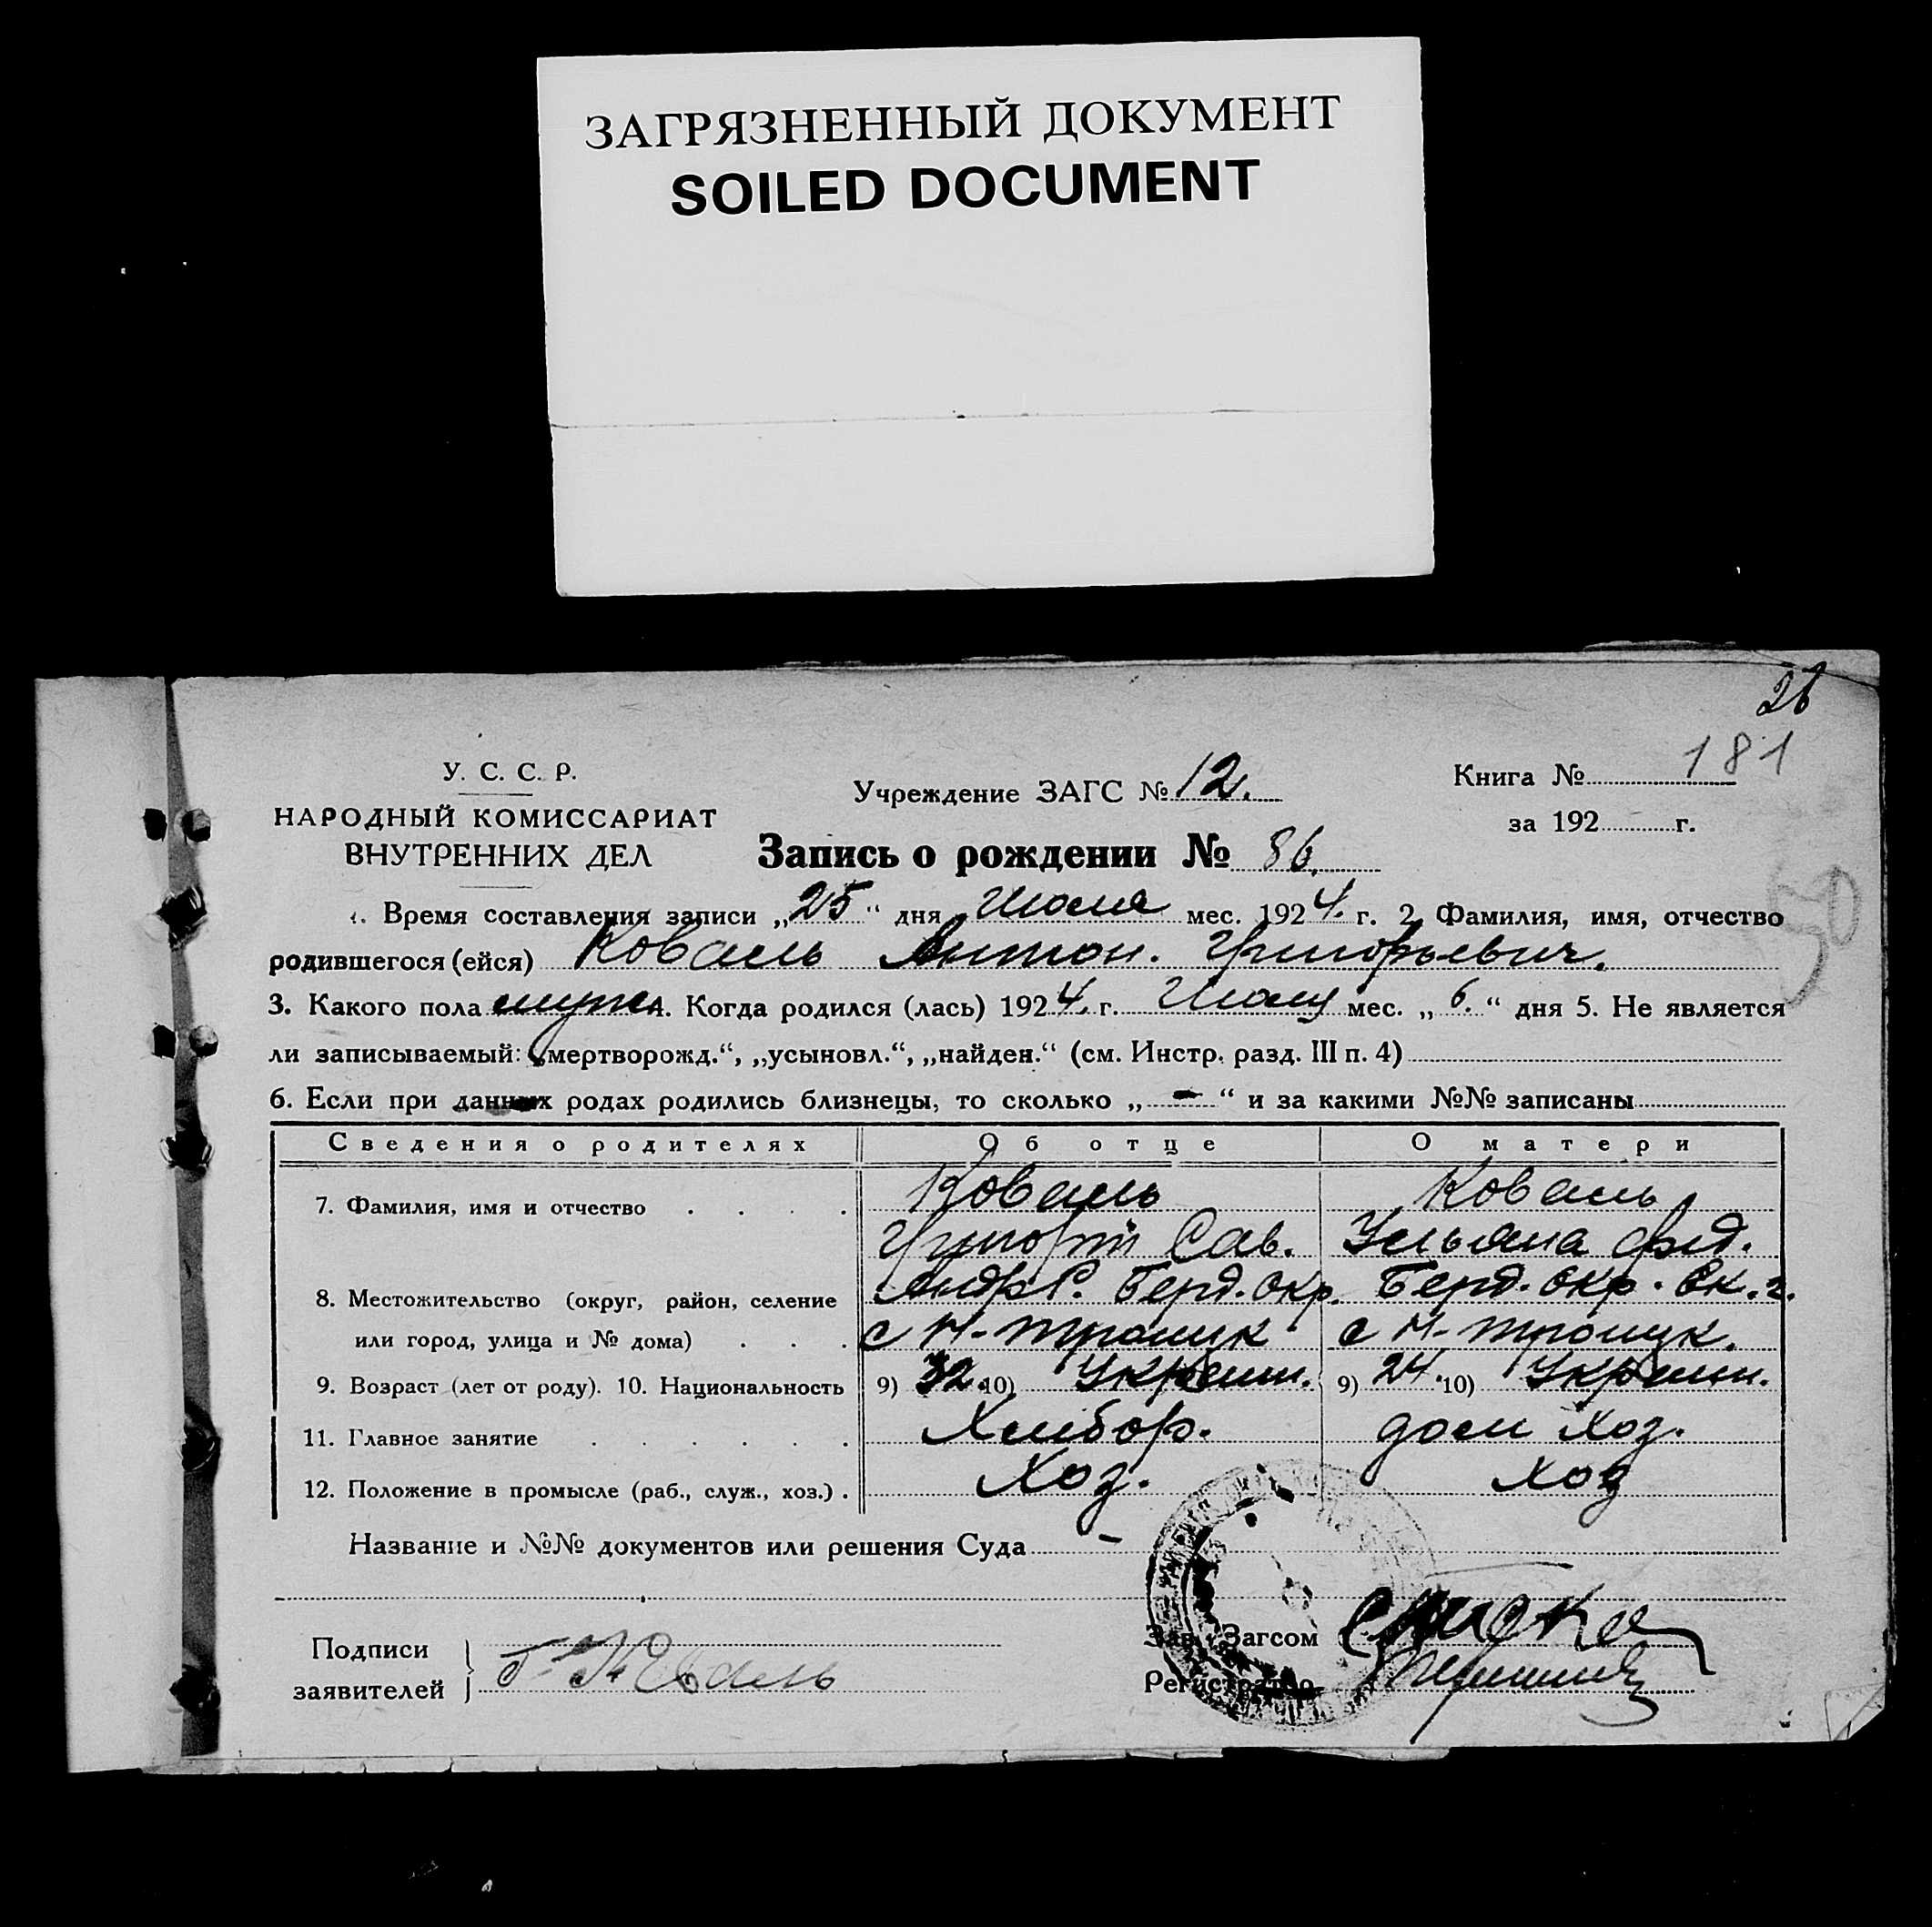 ЗАГРЯЗНЕННЫЙ ДОКУМЕНТ
SOILED DOCUMENT
26
181
У. С. С. Р.
НАРОДНЫЙ КОМИССАРИАТ
ВНУТРЕННИХ ДЕЛ
Учреждение ЗАГС № 12.
Книга №
за 192 г.
Запись о рождении № 86.
50
1. Время составления записи „25“ дня Июля мес. 1924. г. 2. Фамилия, имя, отчество
родившегося (ейся) Коваль Антон. Григорьевич.
3. Какого пола муж 4. Когда родился (лась) 1924. г. Июля мес. „6.“ дня 5. Не является
ли записываемый: „мертворожд.“, „усыновл.“, „найден.“ (см. Инстр. разд. III п. 4)
6. Если при данных родах родились близнецы, то сколько „-“ и за какими №№ записаны
Сведения о родителях Об отце О матери
7. Фамилия, имя и отчество Коваль Коваль
Григорій Сав. Ульяна
8. Местожительство (округ, район, селение Берд. окр. Берд. окр.
или город, улица и № дома) с Н- с Н-
9. Возраст (лет от роду). 10. Национальность 9) 32. 10) Украин. 9) 24. 10) Украин.
11. Главное занятие Хлибор. дом хоз.
12. Положение в промысле (раб., служ., хоз.) Хоз. Хоз
Название и №№ документов или решения Суда -
Подписи
заявителей Г. Коваль
Зав. Загсом
Регистратор